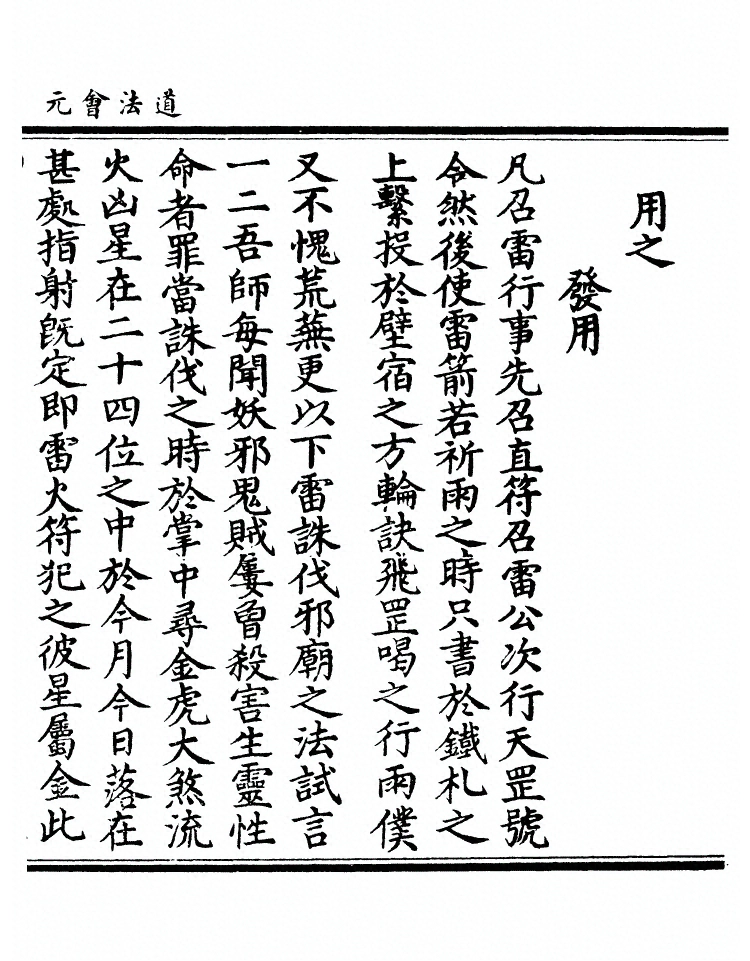 道法會元
用之
發用
凡召雷行事先召直符召雷公次行天罡號
令然後使雷箭若祈雨之時只書於鐵札之
上繫投於壁宿之方輪訣飛罡喝之行雨僕
又不愧荒蕪更以下雷誅伐邪廟之法試言
一二吾師每聞妖邪鬼賊屢曾殺害生靈性
命者罪當誅伐之時於掌中尋金虎大煞流
火凶星在二十四位之中於今月今日落在
甚處指射旣定即雷火符犯之彼星屬金此